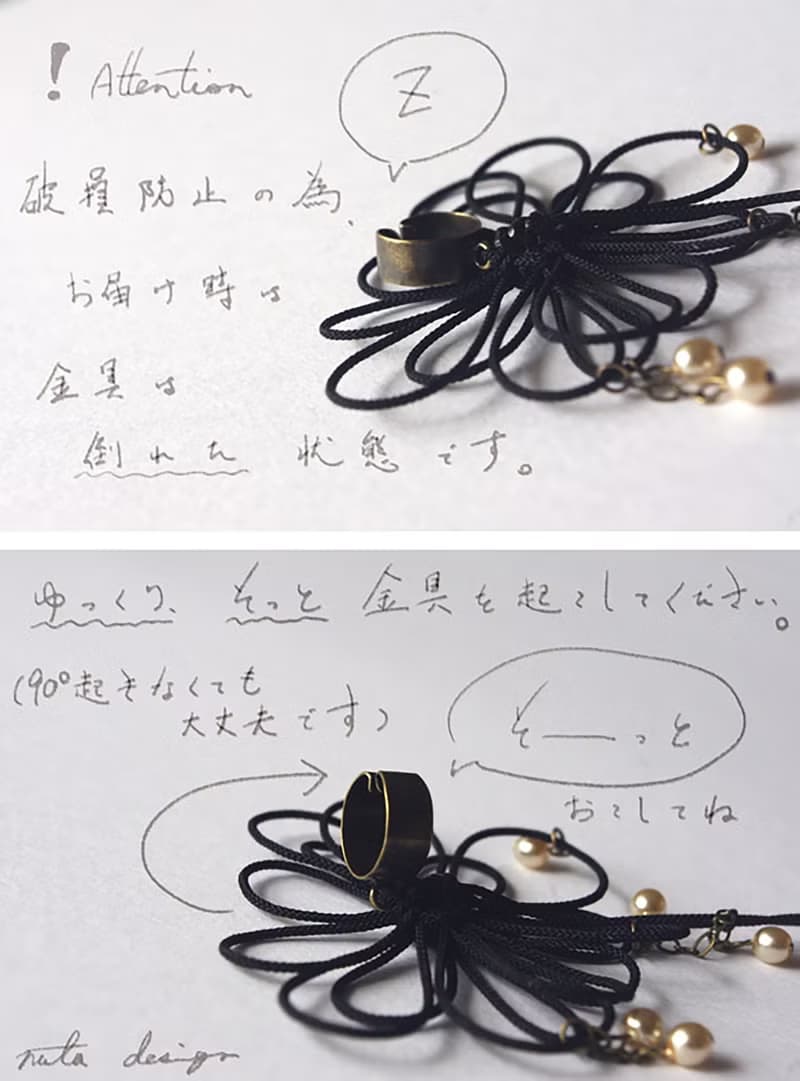 ! Attention
Z
破損防止の為、
お届け時は
金具は
倒れた 状態です。
ゆっくり、そっと 金具を起こしてください。
(90°起きなくても
大丈夫です)
そ——っと
おこしてね
nuta design